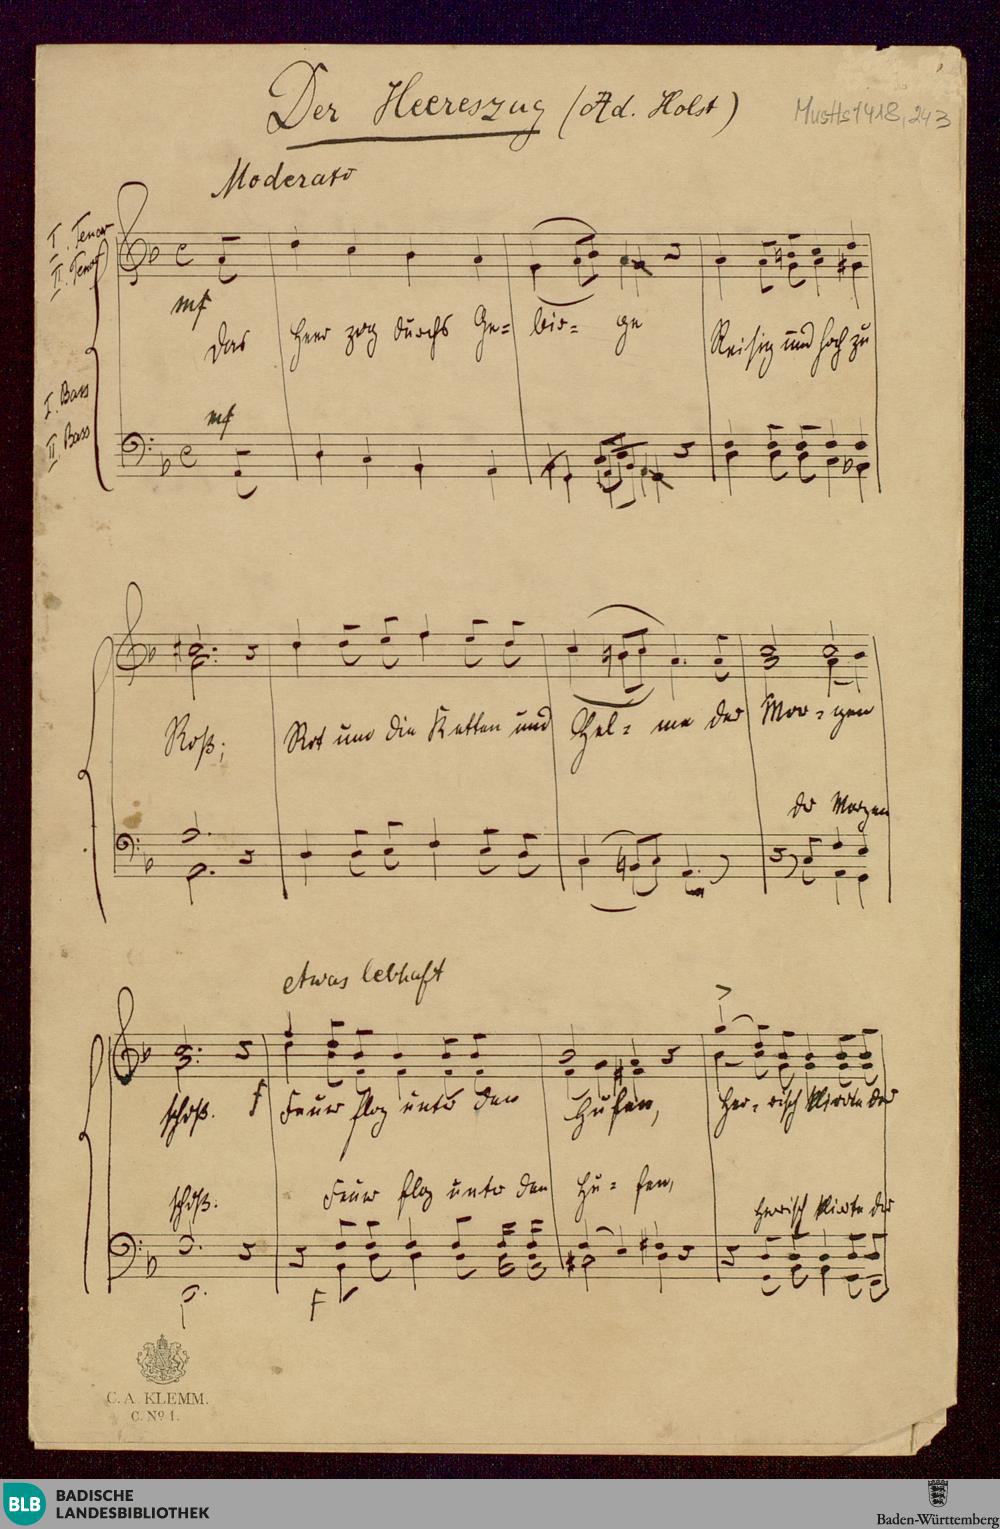 Der Heereszug (Ad. Holst)
MusHs 1418, 243
Moderato
I. Tenor
II. Tenor
mf
Das Heer zog durchs Ge= bir= ge Reisig und hoch zu
I. Bass
II. Bass
mf
Roß; Rot um die Ketten und Hel= me der Mor= gen
der Morgen
etwas lebhaft
schoß. f Feuer flog unter den Hufen, Her= risch klirrte der
schoß. Feuer flog unter den Hu= fen, Herrisch klirrte der
F
C. A. KLEMM.
C. No 1.
BLB BADISCHE
LANDESBIBLIOTHEK
Baden-Württemberg